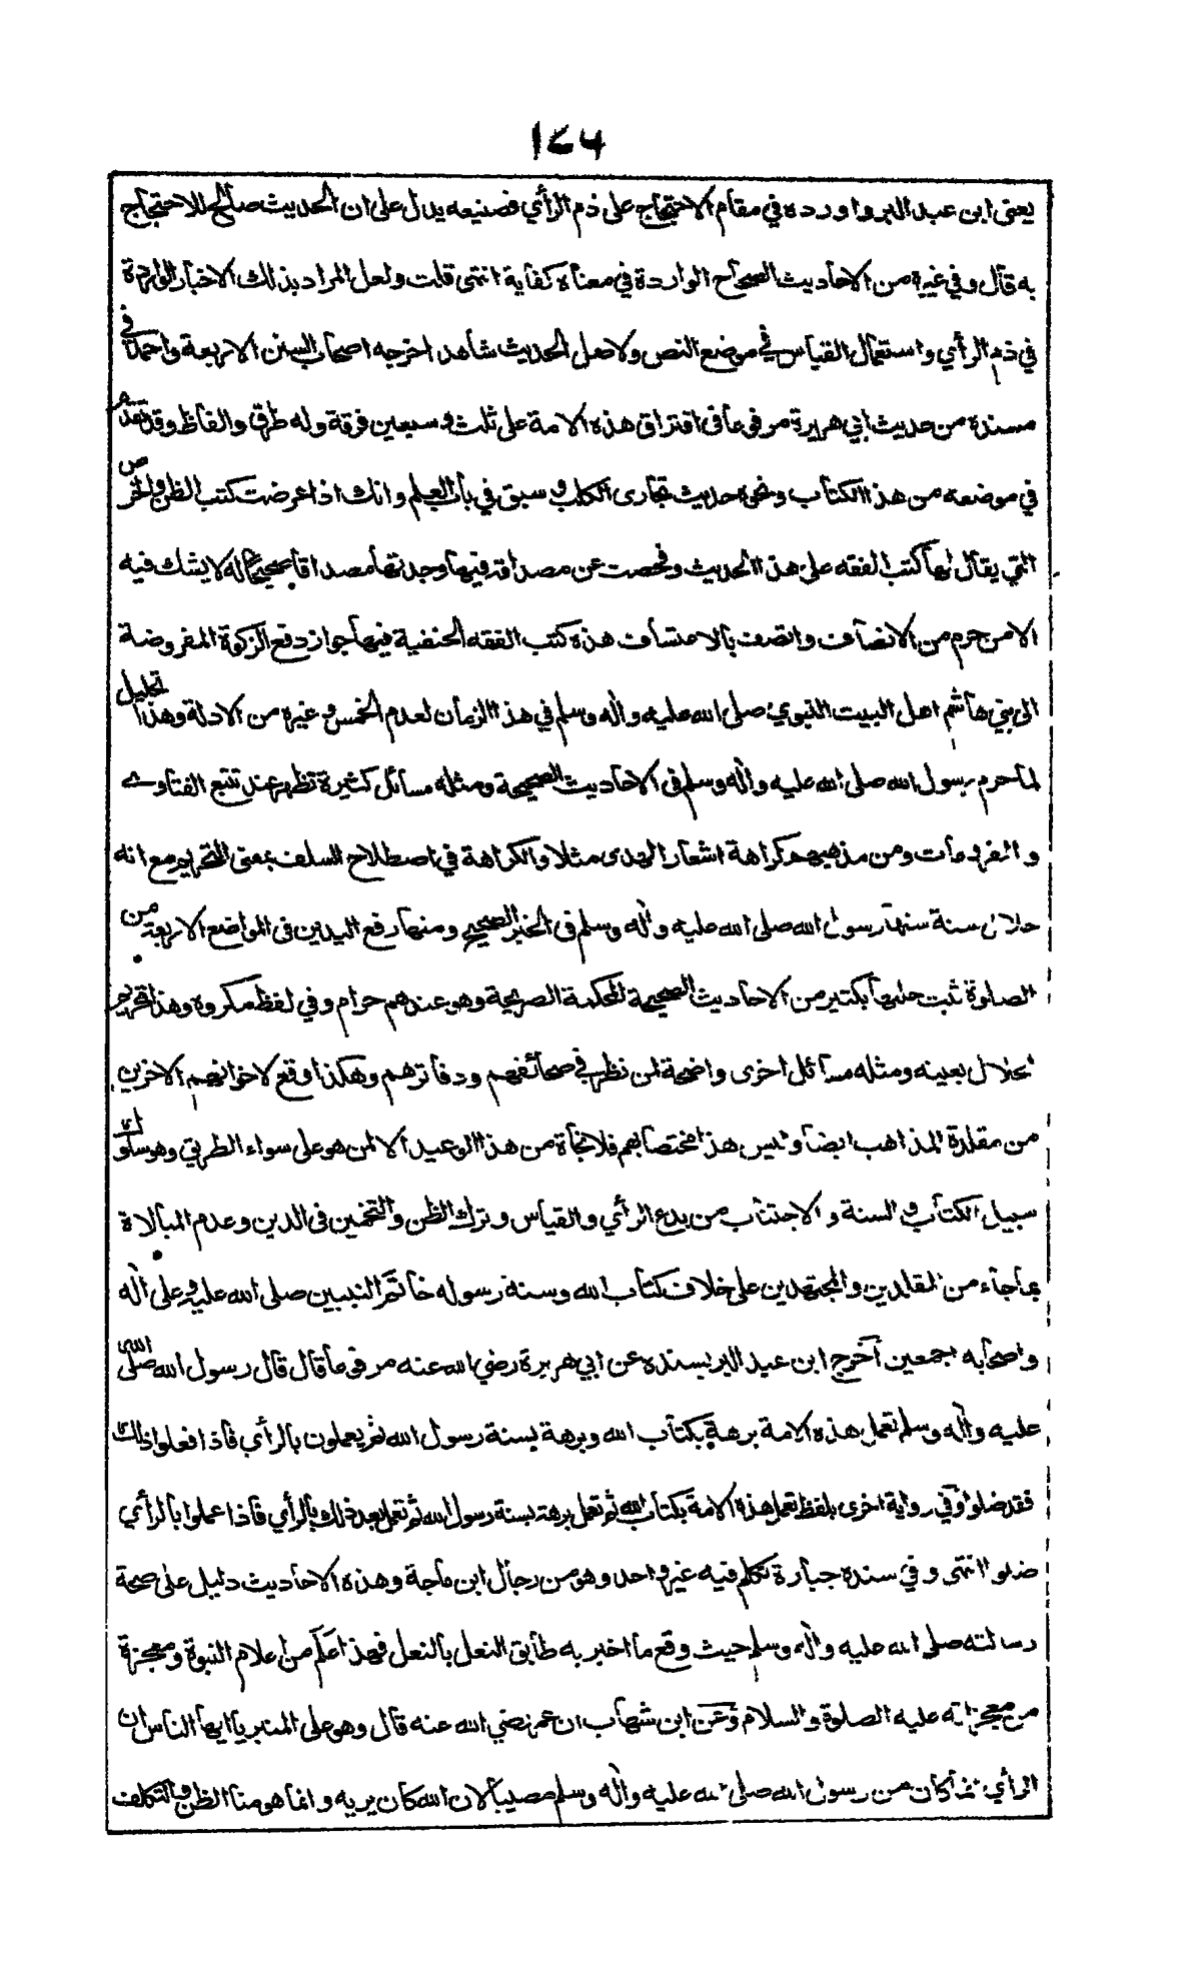 ١٧٦
يعنى ابن عبد البر واورده في مقام الاحتجاج على ذم الرأي فصنيعه يدل على ان الحديث صالح للاحتجاج
به قال وفي غيره من الاحاديث الصحاح الواردة في معناه كفاية انتهى قلت ولعل المراد بذلك الاخبار الواردة
في ذم الرأي واستعمال القياس في موضع النص ولاصل الحديث شاهد اخرجه اصحاب السنن الاربعة واحمد في
مسنده من حديث ابي هريرة مرفوعا في افتراق هذه الامة على ثلث وسبعين فرقة وله طرق والفاظ وقد تقدم
في موضعه من هذا الكتاب ونحوه حديث تجارى الكلب وسبق في باب العلم وانك اذا عرضت كتب الظن والخرص
التي يقال لها كتب الفقه على هذا الحديث وفحصت عن مصداقه فيها وجدتها مصداقا صحيحا له لا يشك فيه
الا من حرم من الانصاف واتصف بالاعتساف هذه كتب الفقه الحنفية فيها جواز دفع الزكوة المفروضة
الى بني هاشم اهل البيت النبوي صلى الله عليه واله وسلم في هذا الزمان لعدم الخمس وغيره من الادلة وهذا تحليل
لما حرم رسول الله صلى الله عليه واله وسلم في الاحاديث الصحيحة ومثله مسائل كثيرة تظهر عند تتبع الفتاوے
والفروعات ومن مذهبهم كراهة اشعار الهدى مثلا والكراهة في اصطلاح السلف بمعنى التحريم مع انه
حلال سنة سنها رسول الله صلى الله عليه واله وسلم في الخبر الصحيح ومنها رفع اليدين في المواضع الاربعة من
الصلوة ثبت حلها بكثير من الاحاديث الصحيحة المحكمة الصريحة وهو عندهم حرام وفي لفظ مكروه وهذا تحريم
لحلال بعينه ومثله مسائل اخرى واضحة لمن نظر في صحائفهم ودفاترهم وهكذا وقع لاخوانهم الاخرين
من مقلدة المذاهب ايضا وليس هذا مختصا بهم فلا نجاة من هذا الوعيد الا لمن هو على سواء الطريق وهو سلوك
سبيل الكتاب والسنة والاجتناب من بدع الرأي والقياس وترك الظن والتخمين في الدين وعدم المبالاة
بما جاء من المقلدين والمجتهدين على خلاف كتاب الله وسنة رسوله خاتم النبيين صلى الله عليه وعلى اله
واصحابه اجمعين اخرج ابن عبد البر بسنده عن ابي هريرة رضي الله عنه مرفوعا قال قال رسول الله صلى الله
عليه واله وسلم تعمل هذه الامة برهة بكتاب الله وبرهة بسنة رسول الله ثم يعملون بالرأي فاذا فعلوا ذلك
فقد ضلوا وفي رواية اخرى بلفظ تعمل هذه الامة بكتاب الله ثم تعمل برهة بسنة رسول الله ثم تعمل بعد ذلك بالرأي فاذا عملوا بالرأي
ضلوا انتهى وفي سنده جبارة تكلم فيه غير واحد وهو من رجال ابن ماجة وهذه الاحاديث دليل على صحة
رسالته صلى الله عليه واله وسلم حيث وقع ما اخبر به طابق النعل بالنعل فهذا علم من اعلام النبوة ومعجزة
من معجزاته عليه الصلوة والسلام وعن ابن شهاب ان عمر رضي الله عنه قال وهو على المنبر يا ايها الناس ان
الرأي انما كان من رسول الله صلى الله عليه واله وسلم مصيبا لان الله كان يريه وانما هو منا الظن والتكلف